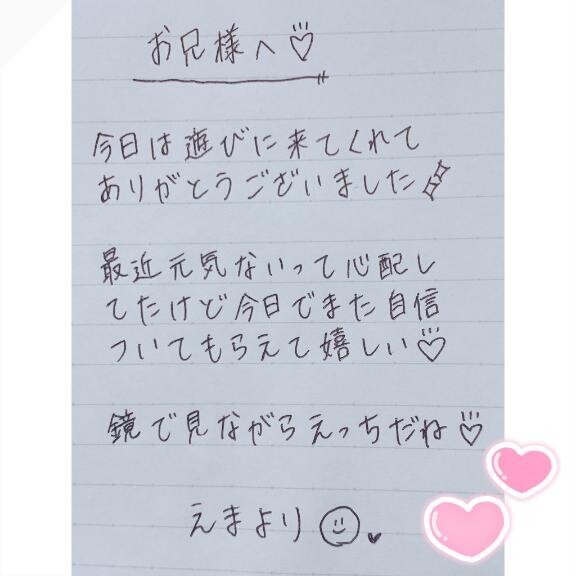 お兄様へ♡
今日は遊びに来てくれて
ありがとうございました
最近元気ないって心配し
てたけど今日でまた自信
ついてもらえて嬉しい♡
鏡で見ながらえっちだね♡
えまより